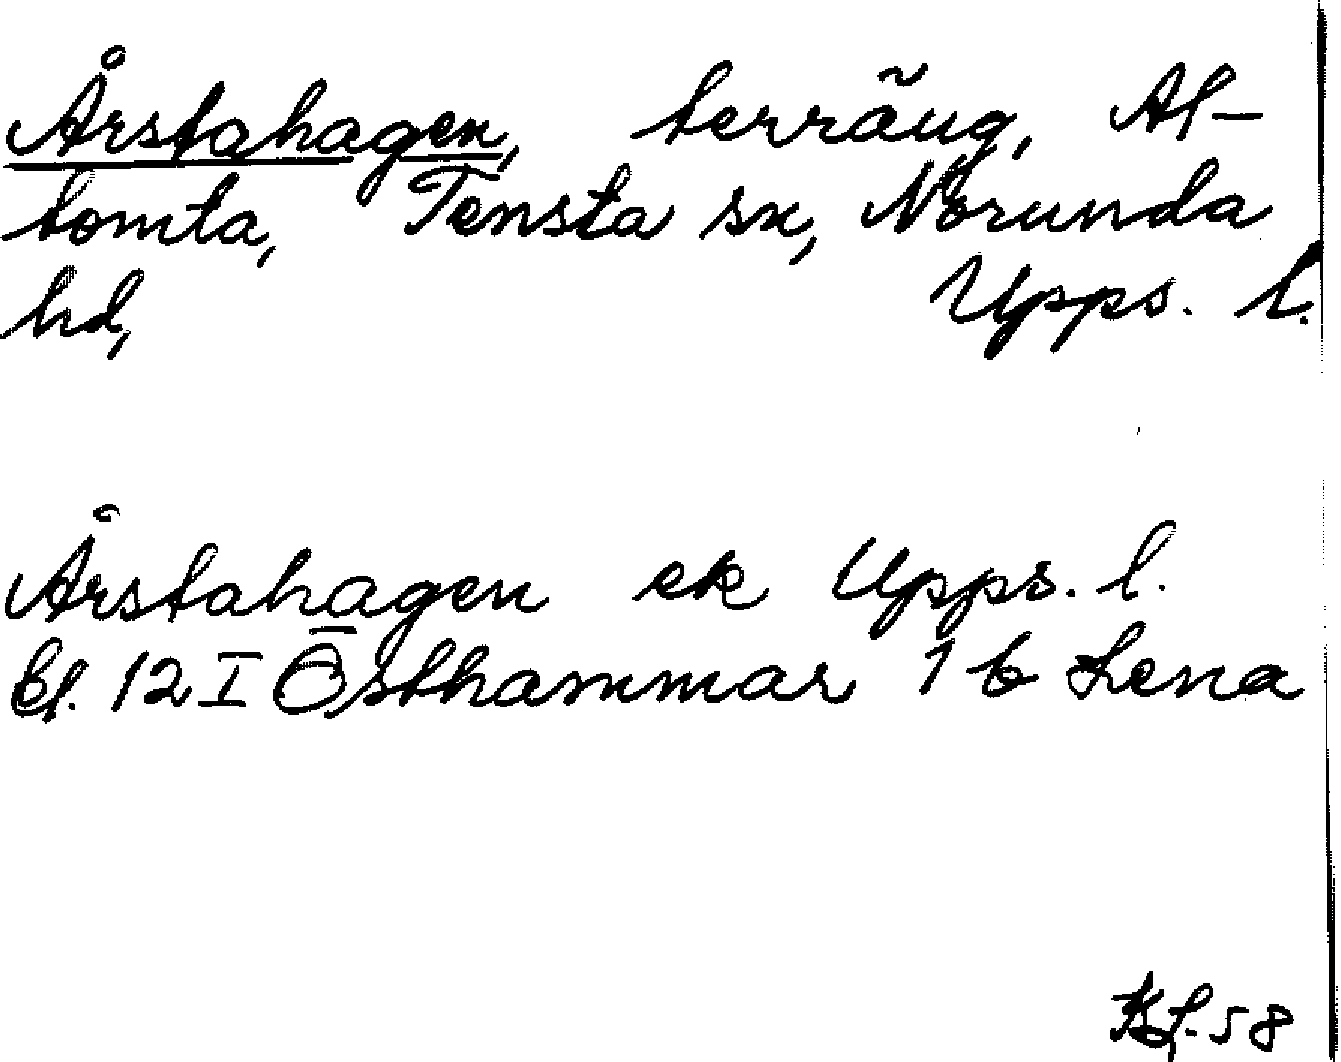 Årstahagen, terräng, Al-
tomta, Tensta sn, Norunda
hd, Upps. l.
Årstahagen ek Upps. l.
bl. 12 I Östhammar 1 b Lena
58